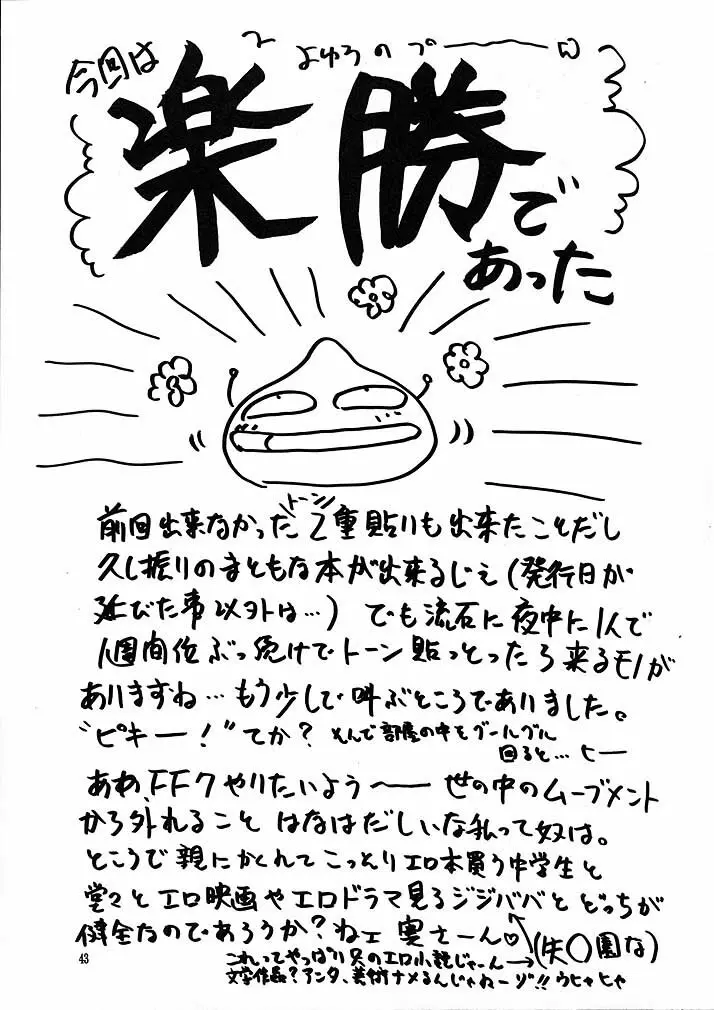 今回は
よゆうのプーーω
楽勝で
あった
トーン
前回出来なかった2重貼りも出来たことだし
久し振りのまともな本が出来るじぇ(発行日が
延びた事以外は…)でも流石に夜中に1人で
1週間位ぶっ続けでトーン貼っとったら来るモノが
ありますね…もう少しで叫ぶところでありました。
"ピキー!"てか?そんで部屋の中をグールグル
回ると…ヒー
ああ、FF7やりたいよう〜ー世の中のムーブメント
から外れることはなはだしいな私って奴は。
ところで親にかくれてこっそりエロ本買う中学生と
堂々とエロ映画やエロドラマ見るジジババとどっちが
健全なのであろうか?ねェ奥さーん♡(失〇園な)
これってやっぱ只のエロ小説じゃーん→
文学作品?アンタ、美術ナメるんじゃねーゾ!!ウヒャヒャ
43